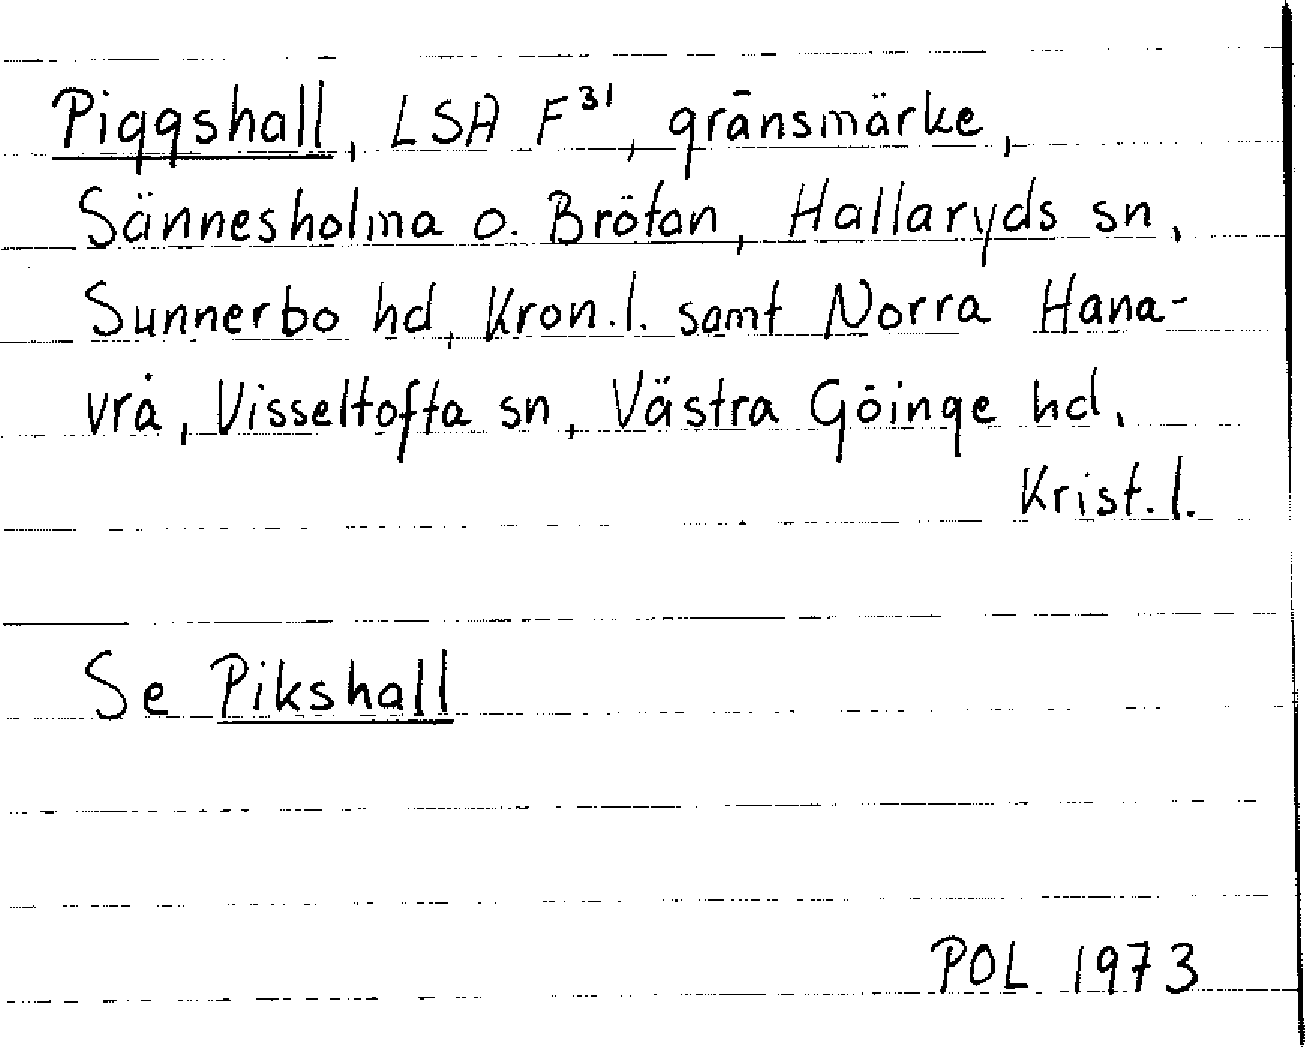 Piggshall, LSA F³¹, gränsmärke,
Sännesholma o. Brötan, Hallaryds sn,
Sunnerbo hd, Kron.l. samt Norra Hana-
vrå, Visseltofta sn, Västra Göinge hd,
Krist.l.
Se Pikshall
POL 1973